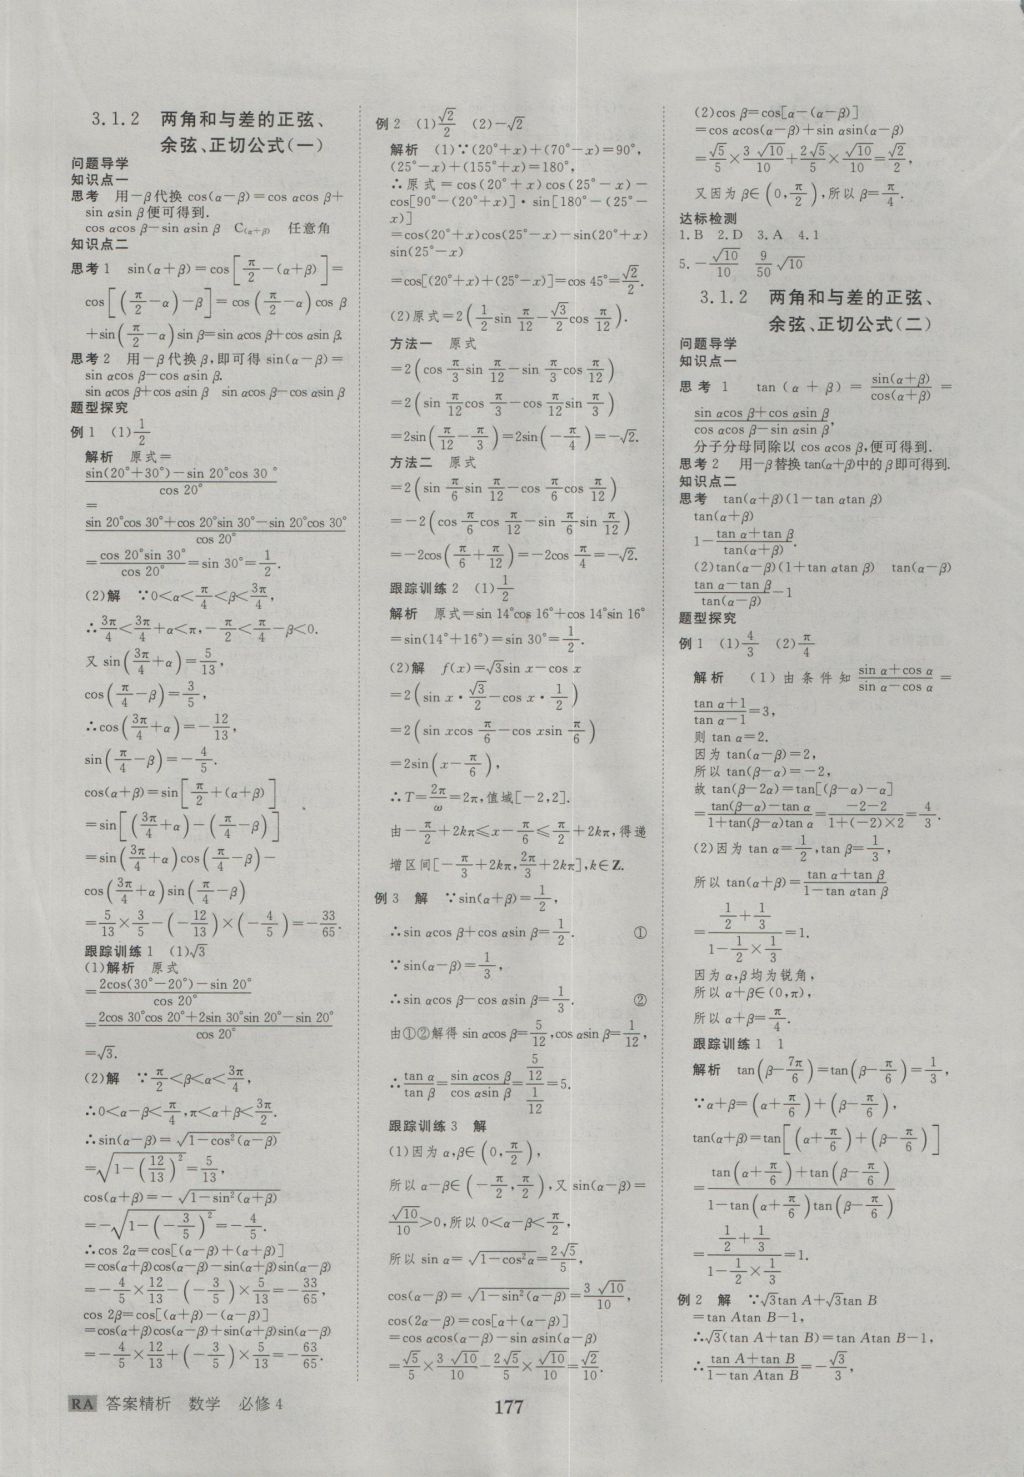 3.1.2 两角和与差的正弦、
余弦、正切公式(一)
问题导学
知识点一
思考 用-β代换 cos(α-β)=cos αcos β+
sin αsin β便可得到.
cos αcos β-sin αsin β C(α+β) 任意角
知识点二
思考1 sin(α+β)=cos[π/2-(α+β)]=
cos[(π/2-α)-β]=cos(π/2-α)cos β
+sin(π/2-α)sin β=sin αcos β+cos αsin β.
思考2 用-β代换β,即可得 sin(α-β)=
sin αcos β-cos αsin β.
sin αcos β+cos αsin β sin αcos β-cos αsin β
题型探究
例1 (1)1/2
解析 原式=
sin(20°+30°)-sin 20°cos 30°/cos 20°
=
sin 20°cos 30°+cos 20°sin 30°-sin 20°cos 30°/cos 20°
=cos 20°sin 30°/cos 20°=sin 30°=1/2.
(2)解 ∵0<α<π/4<β<3π/4,
∴3π/4<3π/4+α<π,-π/2<π/4-β<0.
又 sin(3π/4+α)=5/13,
cos(π/4-β)=3/5,
∴cos(3π/4+α)=-12/13,
sin(π/4-β)=-4/5.
cos(α+β)=sin[π/2+(α+β)]
=sin[(3π/4+α)-(π/4-β)]
=sin(3π/4+α)cos(π/4-β)-
cos(3π/4+α)sin(π/4-β)
=5/13×3/5-(-12/13)×(-4/5)=-33/65.
跟踪训练1 (1)√3
(1)解析 原式
=2cos(30°-20°)-sin 20°/cos 20°
=2cos 30°cos 20°+2sin 30°sin 20°-sin 20°/cos 20°
=√3.
(2)解 ∵π/2<β<α<3π/4,
∴0<α-β<π/4,π<α+β<3π/2.
∴sin(α-β)=√(1-cos²(α-β))
=√(1-(12/13)²)=5/13,
cos(α+β)=-√(1-sin²(α+β))
=-√(1-(-3/5)²)=-4/5.
∴cos 2α=cos[(α-β)+(α+β)]
=cos(α+β)cos(α-β)-sin(α+β)sin(α-β)
=-4/5×12/13-(-3/5)×5/13=-33/65,
cos 2β=cos[(α+β)-(α-β)]
=cos(α+β)cos(α-β)+sin(α+β)sin(α-β)
=-4/5×12/13+(-3/5)×5/13=-63/65.
例2 (1)√2/2 (2)-√2
解析 (1)∵(20°+x)+(70°-x)=90°,
(25°-x)+(155°+x)=180°,
∴原式=cos(20°+x)cos(25°-x)-
cos[90°-(20°+x)]·sin[180°-(25°-
x)]
=cos(20°+x)cos(25°-x)-sin(20°+x)
sin(25°-x)
=cos[(20°+x)+(25°-x)]=cos 45°=√2/2.
(2)原式=2(1/2sin π/12-√3/2cos π/12).
方法一 原式
=2(cos π/3sin π/12-sin π/3cos π/12)
=2(sin π/12cos π/3-cos π/12sin π/3)
=2sin(π/12-π/3)=2sin(-π/4)=-√2.
方法二 原式
=2(sin π/6sin π/12-cos π/6cos π/12)
=-2(cos π/6cos π/12-sin π/6sin π/12)
=-2cos(π/6+π/12)=-2cos π/4=-√2.
跟踪训练2 (1)1/2
解析 原式=sin 14°cos 16°+cos 14°sin 16°
=sin(14°+16°)=sin 30°=1/2.
(2)解 f(x)=√3sin x-cos x
=2(sin x·√3/2-cos x·1/2)
=2(sin xcos π/6-cos xsin π/6)
=2sin(x-π/6),
∴T=2π/ω=2π,值域[-2,2].
由-π/2+2kπ≤x-π/6≤π/2+2kπ,得递
增区间[-π/3+2kπ,2π/3+2kπ],k∈Z.
例3 解 ∵sin(α+β)=1/2,
∴sin αcos β+cos αsin β=1/2. ①
∵sin(α-β)=1/3,
∴sin αcos β-cos αsin β=1/3. ②
由①②解得 sin αcos β=5/12,cos αsin β=1/12,
∴tan α/tan β=sin αcos β/cos αsin β=(5/12)/(1/12)=5.
跟踪训练3 解
(1)因为 α,β∈(0,π/2),
所以 α-β∈(-π/2,π/2),又 sin(α-β)=
√10/10>0,所以 0<α-β<π/2,
所以 sin α=√(1-cos²α)=2√5/5,
cos(α-β)=√(1-sin²(α-β))=3√10/10,
cos(2α-β)=cos[α+(α-β)]
=cos αcos(α-β)-sin αsin(α-β)
=√5/5×3√10/10-2√5/5×√10/10=√2/10.
(2)cos β=cos[α-(α-β)]
=cos αcos(α-β)+sin αsin(α-β)
=√5/5×3√10/10+2√5/5×√10/10=√2/2,
又因为 β∈(0,π/2),所以 β=π/4.
达标检测
1.B 2.D 3.A 4.1
5.-√10/10 9/50√10
3.1.2 两角和与差的正弦、
余弦、正切公式(二)
问题导学
知识点一
思考1 tan(α+β)=sin(α+β)/cos(α+β)=
sin αcos β+cos αsin β/cos αcos β-sin αsin β,
分子分母同除以 cos αcos β,便可得到.
思考2 用-β替换 tan(α+β)中的β即可得到.
知识点二
思考 tan(α+β)(1-tan αtan β)
tan(α+β)
1-tan α+tan β/tan(α+β).
(2)tan(α-β)(1+tan αtan β) tan(α-β)
tan α-tan β/tan(α-β)-1
题型探究
例1 (1)4/3 (2)π/4
解析 (1)由条件知sin α+cos α/sin α-cos α=
tan α+1/tan α-1=3,
则 tan α=2.
因为 tan(α-β)=2,
所以 tan(β-α)=-2,
故 tan(β-2α)=tan[(β-α)-α]
=tan(β-α)-tan α/1+tan(β-α)tan α=-2-2/1+(-2)×2=4/3.
(2)因为 tan α=1/2,tan β=1/3,
所以 tan(α+β)=tan α+tan β/1-tan αtan β
=(1/2+1/3)/(1-1/2×1/3)=1.
因为 α,β均为锐角,
所以 α+β∈(0,π),
所以 α+β=π/4.
跟踪训练1 1
解析 tan(β-7π/6)=tan(β-π/6)=1/3,
∵α+β=(α+π/6)+(β-π/6),
tan(α+β)=tan[(α+π/6)+(β-π/6)]
=(tan(α+π/6)+tan(β-π/6))/(1-tan(α+π/6)tan(β-π/6))
=(1/2+1/3)/(1-1/2×1/3)=1.
例2 解 ∵√3tan A+√3tan B
=tan Atan B-1,
∴√3(tan A+tan B)=tan Atan B-1,
∴tan A+tan B/1-tan Atan B=-√3/3,
RA 答案精析 数学 必修4
177